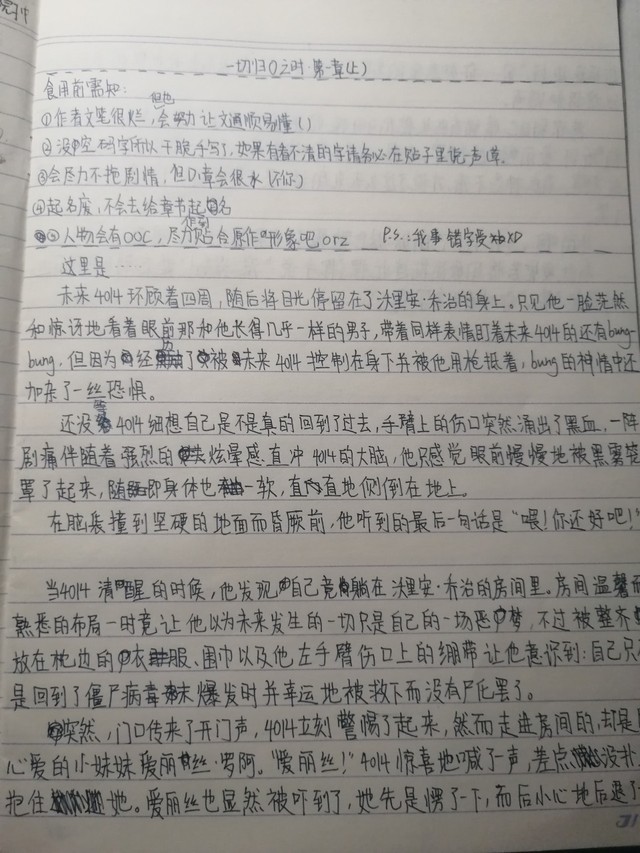 一切归0之时·第一章(上)
食用前需知:
①作者文笔很烂,但也会努力让文通顺易懂()
②没空码字所以干脆手写了,如果有看不清的字请务必在贴子里说声草.
③会尽力不拖剧情,但小章会很水(不你)
④起名废,不会去给章节起名
⑤人物会有OOC,尽力贴合原作的形象吧orz P.S.:我事错字受XD
这里是……
未来4014环顾着四周,随后将目光停留在了沃里安·乔治的身上。只见他一脸茫然
和惊讶地看着眼前那和他长得几乎一样的男子,带着同样表情盯着未来4014的还有bung-
bung,但因为被未来4014控制在身下并被他用枪抵着,bung的神情中还
加杂了一丝恐惧。
还没等4014细想自己是不是真的回到了过去,手臂上的伤口突然涌出了黑血,一阵
剧痛伴随着强烈的炫晕感直冲4014的大脑,他只感觉眼前慢慢地被黑雾笼
罩了起来,随即身体也一软,直直地侧倒在地上。
在脑袋撞到坚硬的地面而昏厥前,他听到的最后一句话是“喂!你还好吧!”
当4014清醒的时候,他发现自己竟躺在沃里安·乔治的房间里。房间温馨而
熟悉的布局一时竟让他以为未来发生的一切只是自己的一场恶梦,不过被整齐
放在枕边的衣服、围巾以及他左手臂伤口上的绷带让他意识到:自己只
是回到了僵尸病毒末爆发时并幸运地被救下而没有尸化罢了。
突然,门口传来了开门声,4014立刻警惕了起来,然而走进房间的,却是
心爱的小妹妹爱丽丝·罗阿。“爱丽丝!”4014惊喜地喊了一声,差点没扑
抱住她。爱丽丝也显然被吓到了,她先是愣了一下,而后小心地后退了